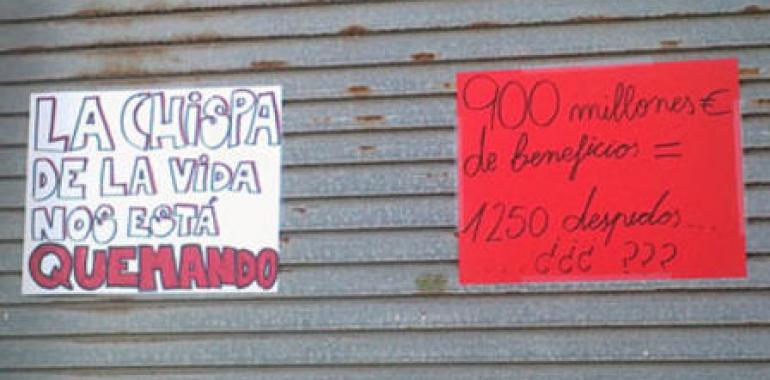 LA CHiSPA
DE LA ViDA
NOS ESTÁ
QUEMANDO
900 millones €
de beneficios =
1250 despidos...
... ¿¿¿ ???